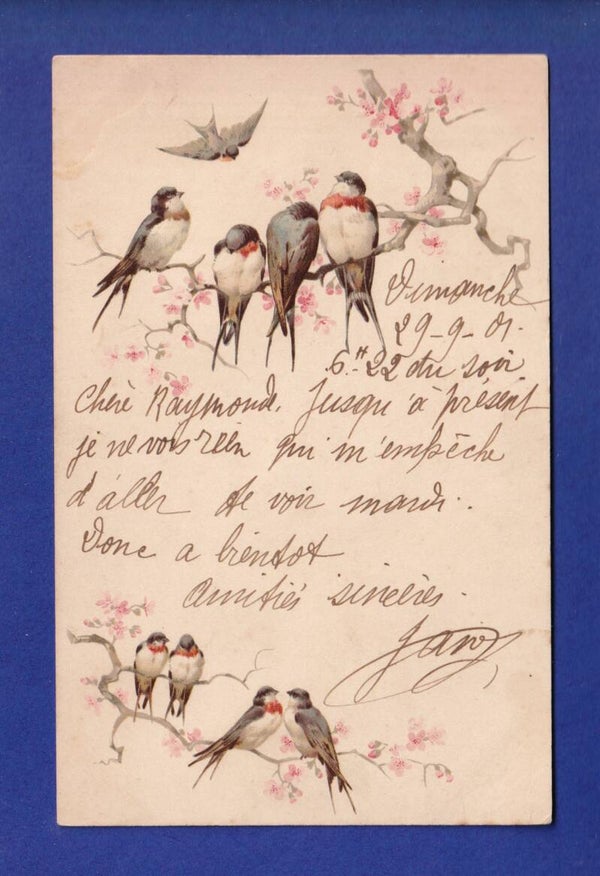 Dimanche
29-9-01.
6.H 22 du soir
Chère Raymonde. Jusqu'à présent
je ne vois rien qui m'empêche
d'aller te voir mardi.
Donc a bientot
Amitiés sincères.